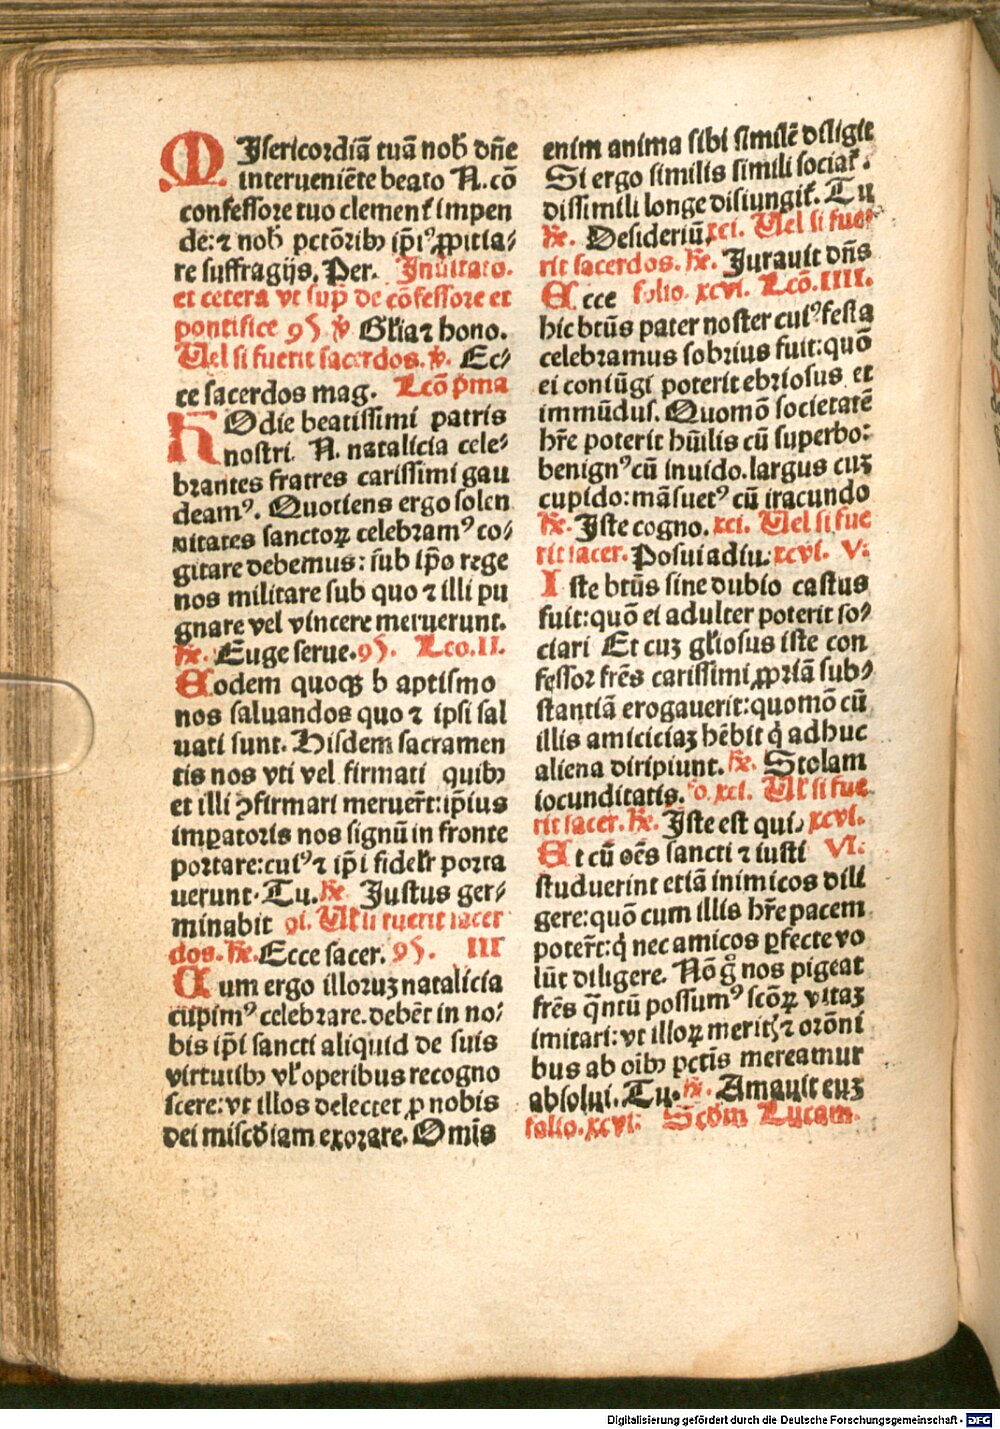 MIsericordiā tuā nob̄ dn̄e
interueniēte beato N. cō
confessore tuo clement͛ impen
de: ⁊ nob̄ pctōribꝫ ip̄iꝰ ꝓpitia⸗
re suffragijs. Per. Inuitato.
et cetera vt sup̄ de cōfessore et
pontifice 95 ℣ Gl̄ia ⁊ hono.
Uel si fuerit sacerdos. ℣. Ec⸗
ce sacerdos mag. Lcō p̄ma
HOdie beatissimi patris
nostri. N. natalicia cele⸗
brantes fratres carissimi gau
deamꝰ. Quotiens ergo solen
nitates sanctoꝝ celebramꝰ co⸗
gitare debemus: sub ip̄o rege
nos militare sub quo ⁊ illi pu
gnare vel vincere meruerunt.
℟. Euge serue. 95. Lco. II.
Eodem quoqꝫ b aptismo
nos saluandos quo ⁊ ipsi sal
uati sunt. Hisdem sacramen
tis nos vti vel firmati quibꝫ
et illi ꝯfirmari meruer̄t: ip̄ius
imꝑatoris nos signū in fronte
portare: cuiꝰ ⁊ ip̄i fidelr̄ porta
uerunt. Tu. ℟ Justus ger⸗
minabit 91. Ul̄ si fuerit sacer
dos. ℟. Ecce sacer. 95. III
Cum ergo illoruꝫ natalicia
cupimꝰ celebrare. debēt in no⸗
bis ip̄i sancti aliquid de suis
virtutibꝫ vl̄ operibus recogno
scere: vt illos delectet ꝓ nobis
dei mis̄cd̄iam exorare. Om̄is
enim anima sibi similē diligit
Si ergo similis simili sociat͛.
dissimili longe disiungit͛. Tu
℟. Desideriū. xci. Uel si fue⸗
rit sacerdos. ℟. Jurauit dn̄s
Ecce folio. xcvi. Lcō. IIII.
hic btūs pater noster cuiꝰ festa
celebramus sobrius fuit: quō
ei coniūgi poterit ebriosus et
immūdus. Quomō societatē
hr̄e poterit hūilis cū superbo:
benignꝰ cū inuido. largus cuꝫ
cupido: māsuetꝰ cū iracundo
℟. Iste cogno. xci. Uel si fue
rit sacer. Posui adiu. xcvi. V.
Iste btūs sine dubio castus
fuit: quō ei adulter poterit so⸗
ciari Et cuꝫ gl̄iosus iste con
fessor frēs carissimi ꝓpriā sub⸗
stantiā erogauerit: quomō cū
illis amiciciaꝫ hēbit q̇ adhuc
aliena diripiunt. ℟. Stolam
iocunditatis. fo. xci. Ul̄ si fue
rit sacer. ℟. Iste est qui. xcvi.
Et cū oēs sancti ⁊ iusti VI.
studuerint etiā inimicos dili
gere: quō cum illis hr̄e pacem
poter̄t: q̇ nec amicos ꝑfecte vo
lūt diligere. Nō g̊ nos pigeat
frēs q̄ntū possumꝰ scōꝝ vitaꝫ
imitari: vt illoꝝ meritꝭ ⁊ orōni
bus ab oībꝫ pctīs mereamur
absolui. Tu. ℟. Amauit euꝫ
folio. xcvi. Scd̄m Lucam.
Digitalisierung gefördert durch die Deutsche Forschungsgemeinschaft - DFG